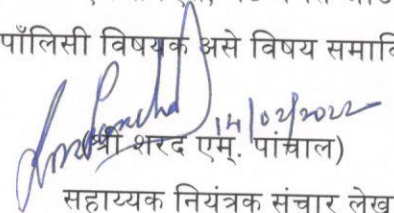 पॉलिसी विषयक असे विषय समावि
14/02/2022
(श्री शरद एम. पांचाल)
सहाय्यक नियंत्रक संचार लेख